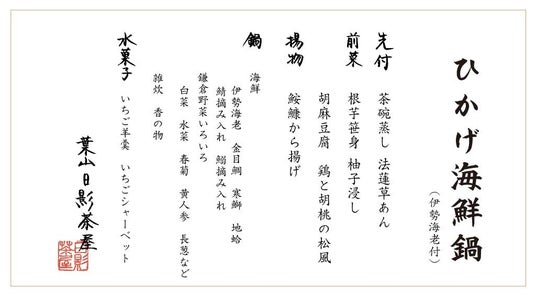 ひかげ海鮮鍋
(伊勢海老付)
先付
茶碗蒸し 法蓮草あん
前菜
根芋笹身 柚子浸し
胡麻豆腐 鶏と胡桃の松風
揚物
鮟鱇から揚げ
鍋
海鮮
伊勢海老 金目鯛 寒鰤 地蛤
鯖摘み入れ 鰯摘み入れ
鎌倉野菜いろいろ
白菜 水菜 春菊 黄人参 長葱など
雑炊 香の物
水菓子
いちご羊羹 いちごシャーベット
葉山日影茶屋
日影茶屋